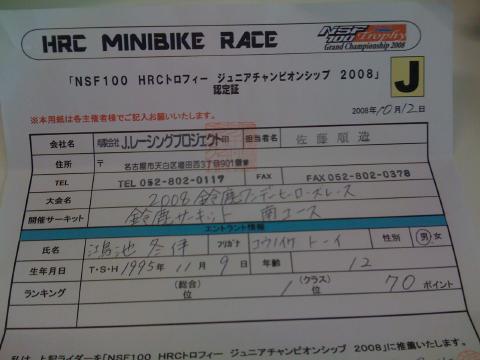 HRC MINIBIKE RACE
NSF 100 Trophy
Grand Championship 2008
「NSF100 HRCトロフィー ジュニアチャンピオンシップ 2008」
認定証
J
2008年10月12日
※本用紙は各主催者様でご記入お願いいたします。
会社名 有限会社J.レーシングプロジェクト 印 担当者名 佐藤順造
住所 〒 名古屋市天白区植田西3丁目901番
TEL TEL 052-802-0117 FAX FAX 052-802-0378
大会名 2008 鈴鹿サンデーロードレース
開催サーキット 鈴鹿サーキット 南コース
エントラント情報
氏名 フリガナ コウノイケ トーイ 性別 男・女
生年月日 T・S・H 1995年 11月 9日 年齢 12
ランキング (総合) 位 (クラス) 1位 70 ポイント
私は、上記ライダーを「NSF100 HRCトロフィー ジュニアチャンピオンシップ 2008」に推薦いたします。